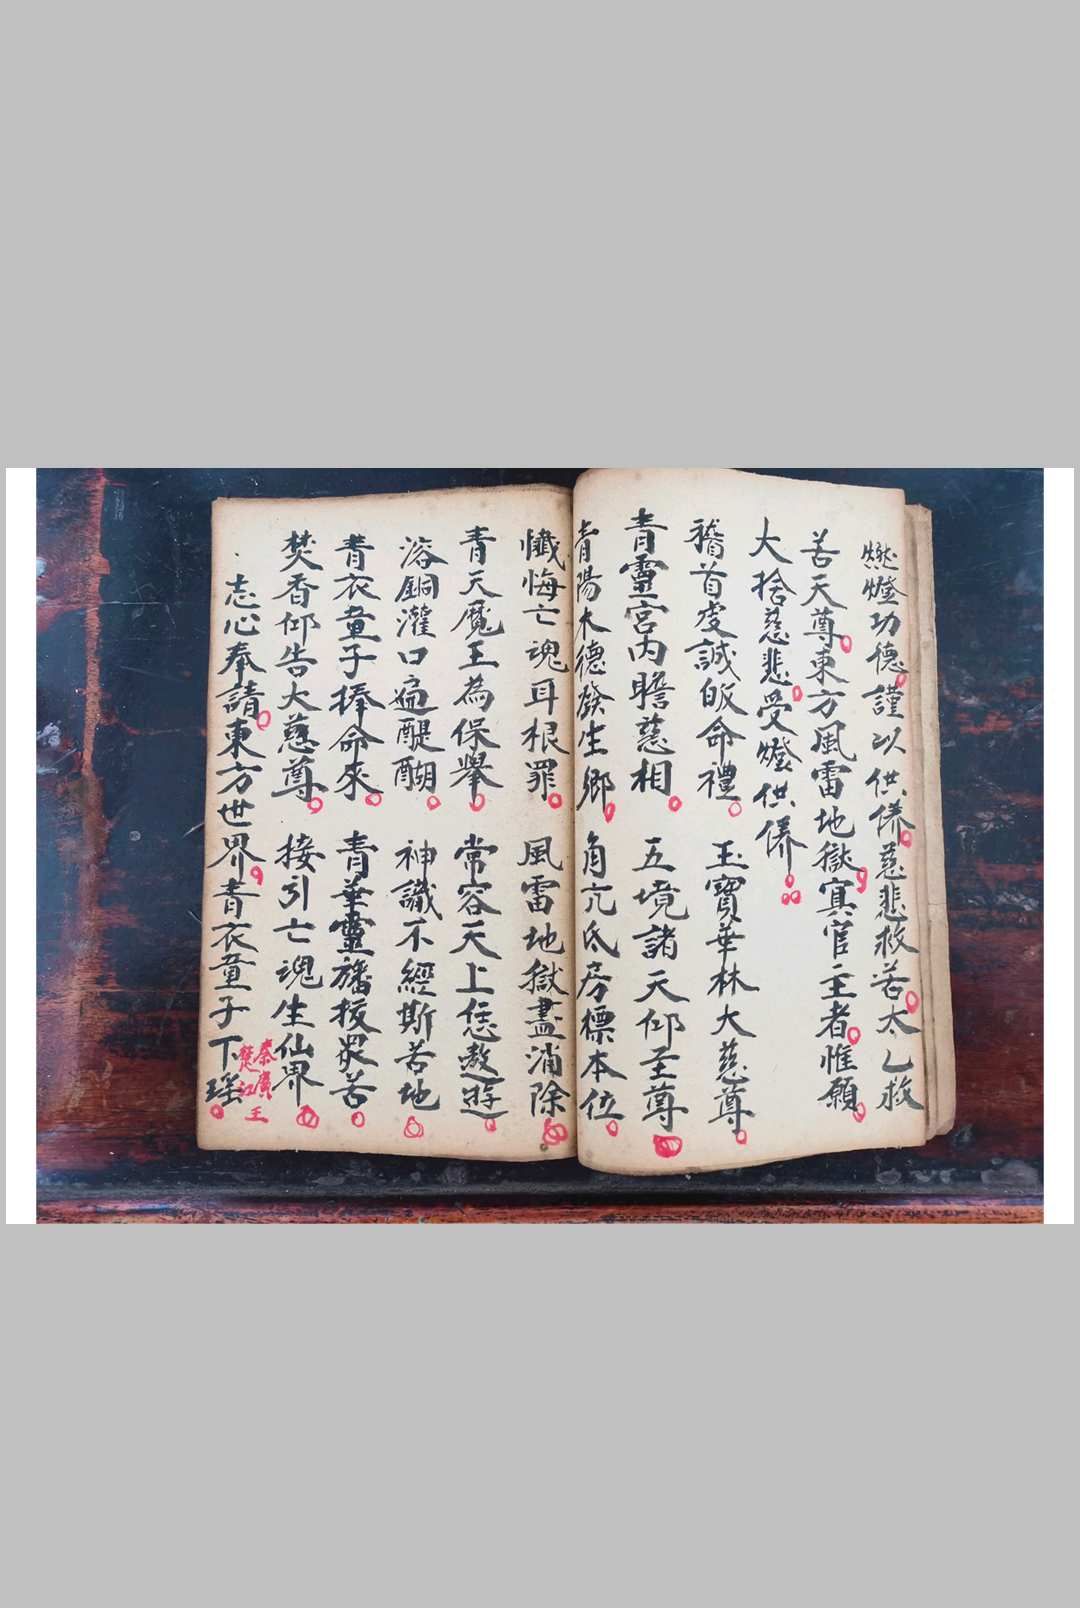 燃燈功德謹以供养慈悲救苦太乙救
苦天尊東方風雷地獄冥官主者惟願
大捨慈悲受燈供养
稽首虔誠皈命禮 玉寶華林大慈尊
青靈宮内瞻慈相 五境諸天仰至尊
青陽木德發生鄉 角亢氐房標本位
懺悔亡魂耳根罪 風雷地獄盡消除
青天魔王為保舉 常容天上恁遨遊
溶銅灌口遍醍醐 神識不經斯苦地
青衣童子捧命來 青華靈旛拔眾苦
焚香仰告大慈尊 接引亡魂生仙界
志心奉請東方世界青衣童子下瑶
秦廣王
楚江